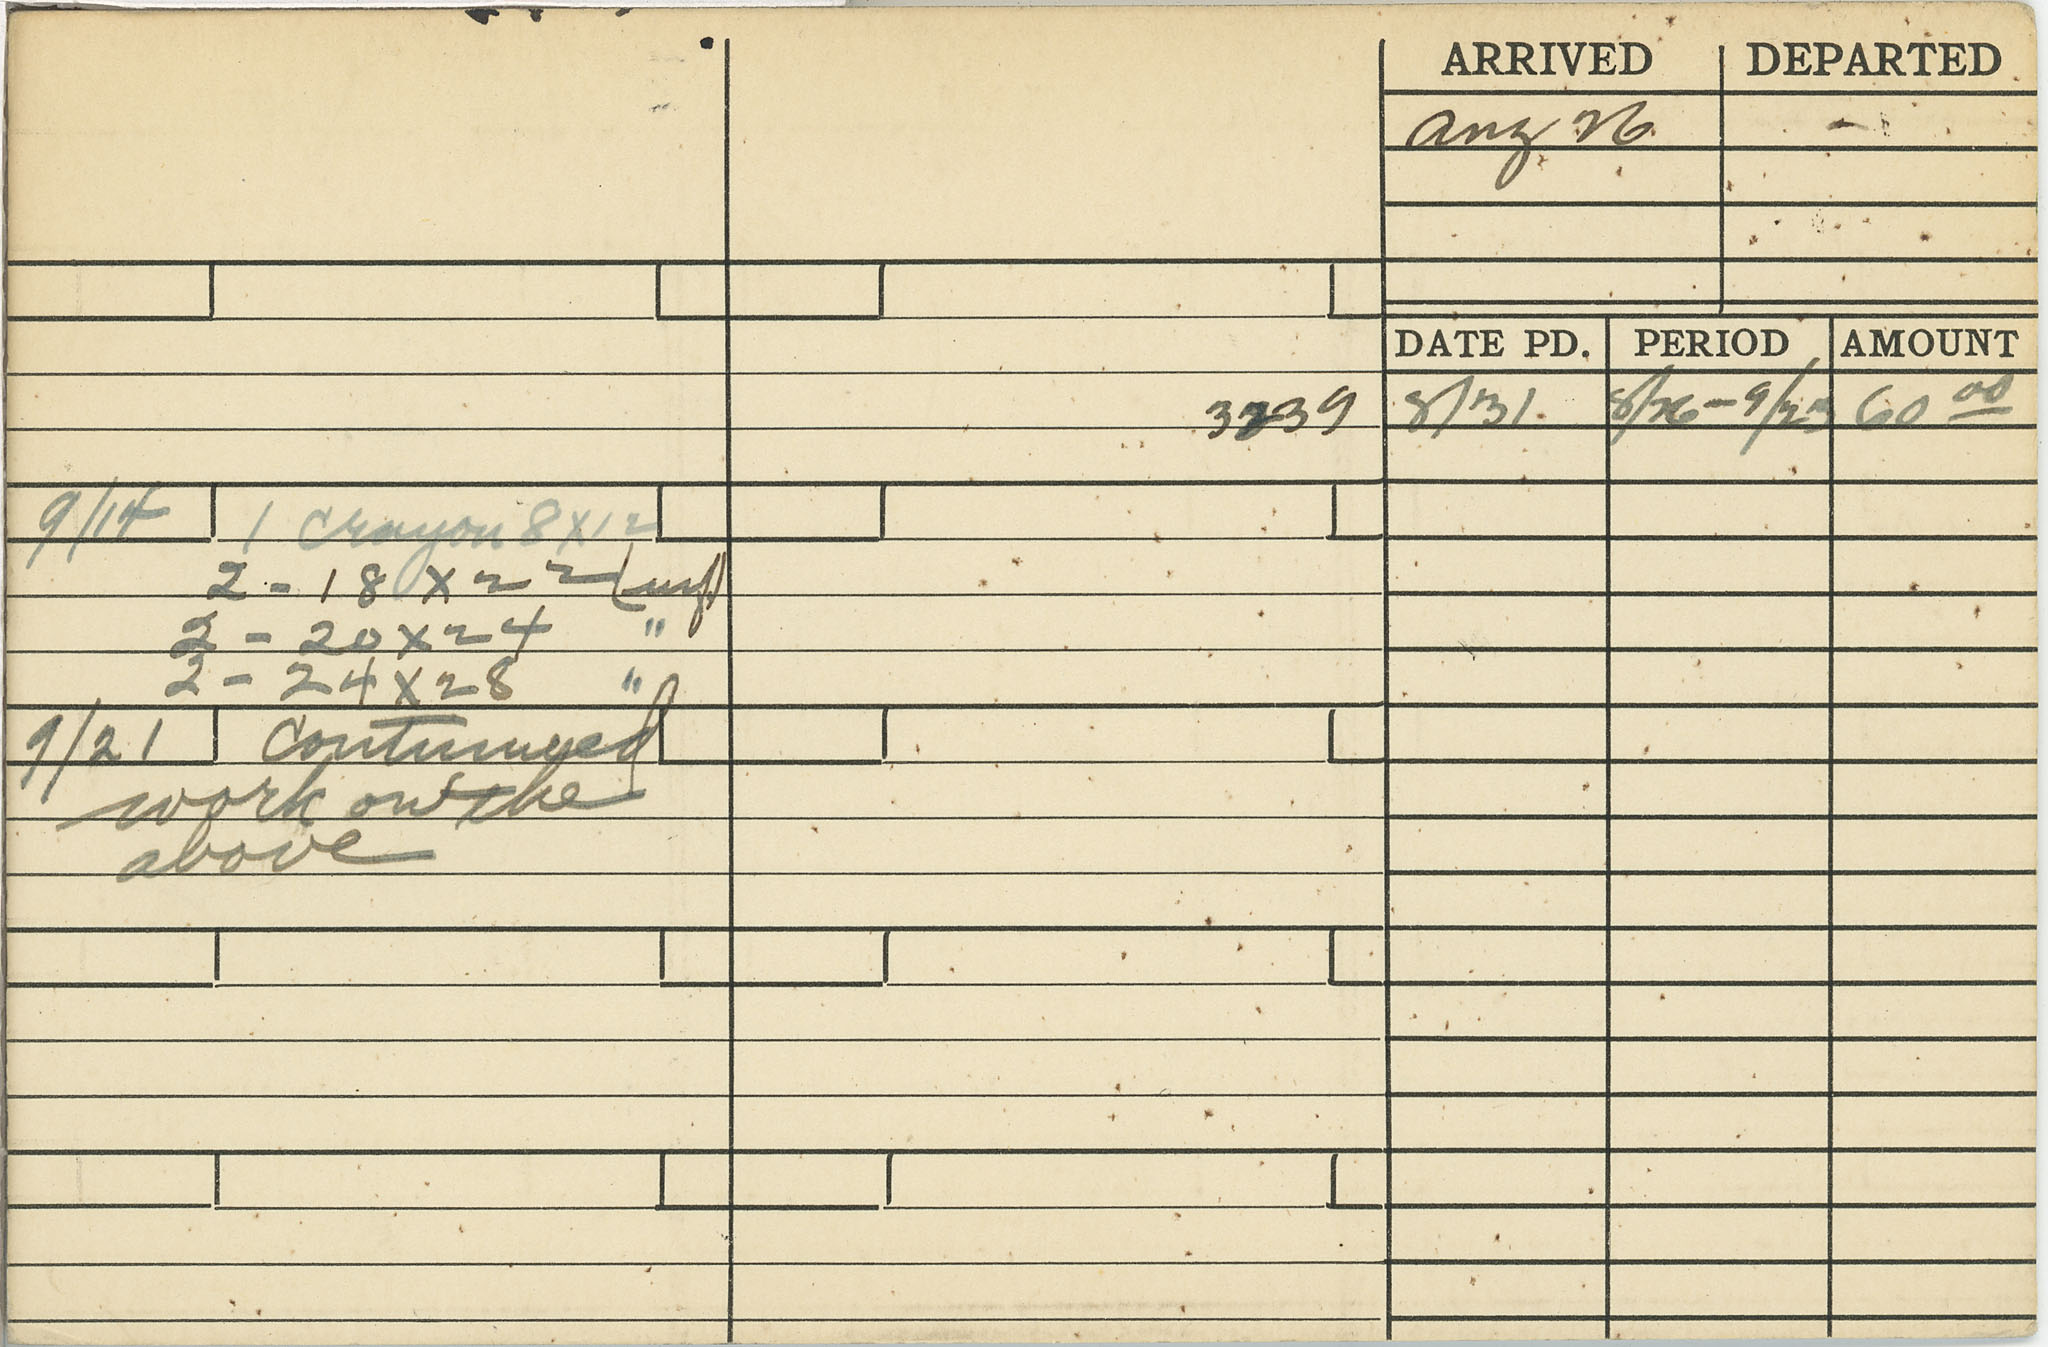 ARRIVED DEPARTED
Aug 26 -
DATE PD. PERIOD AMOUNT
3239 8/31 8/26-9/23 60 00
9/14 1 Crayon 8x12
2 - 18 x 22 (unf)
2 - 20 x 24 "
2 - 24 x 28 "
9/21 Continued
work on the
above